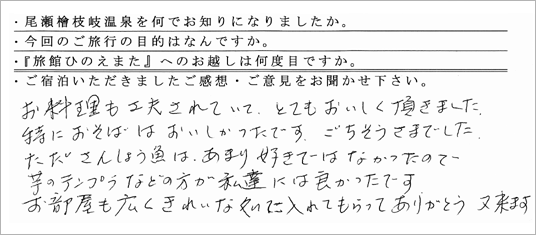 ・尾瀬檜枝岐温泉を何でお知りになりましたか。
・今回のご旅行の目的はなんですか。
・『旅館ひのえまた』へのお越しは何度目ですか。
・ご宿泊いただきましたご感想・ご意見をお聞かせ下さい。
お料理も工夫されていて、とてもおいしく頂きました。
特におそばはおいしかったです。ごちそうさまでした。
たださんしょう魚は、あまり好きではなかったので
芋のテンプラなどの方が私達には良かったです
お部屋も広くきれいな 入れてもらってありがとう 又来ます